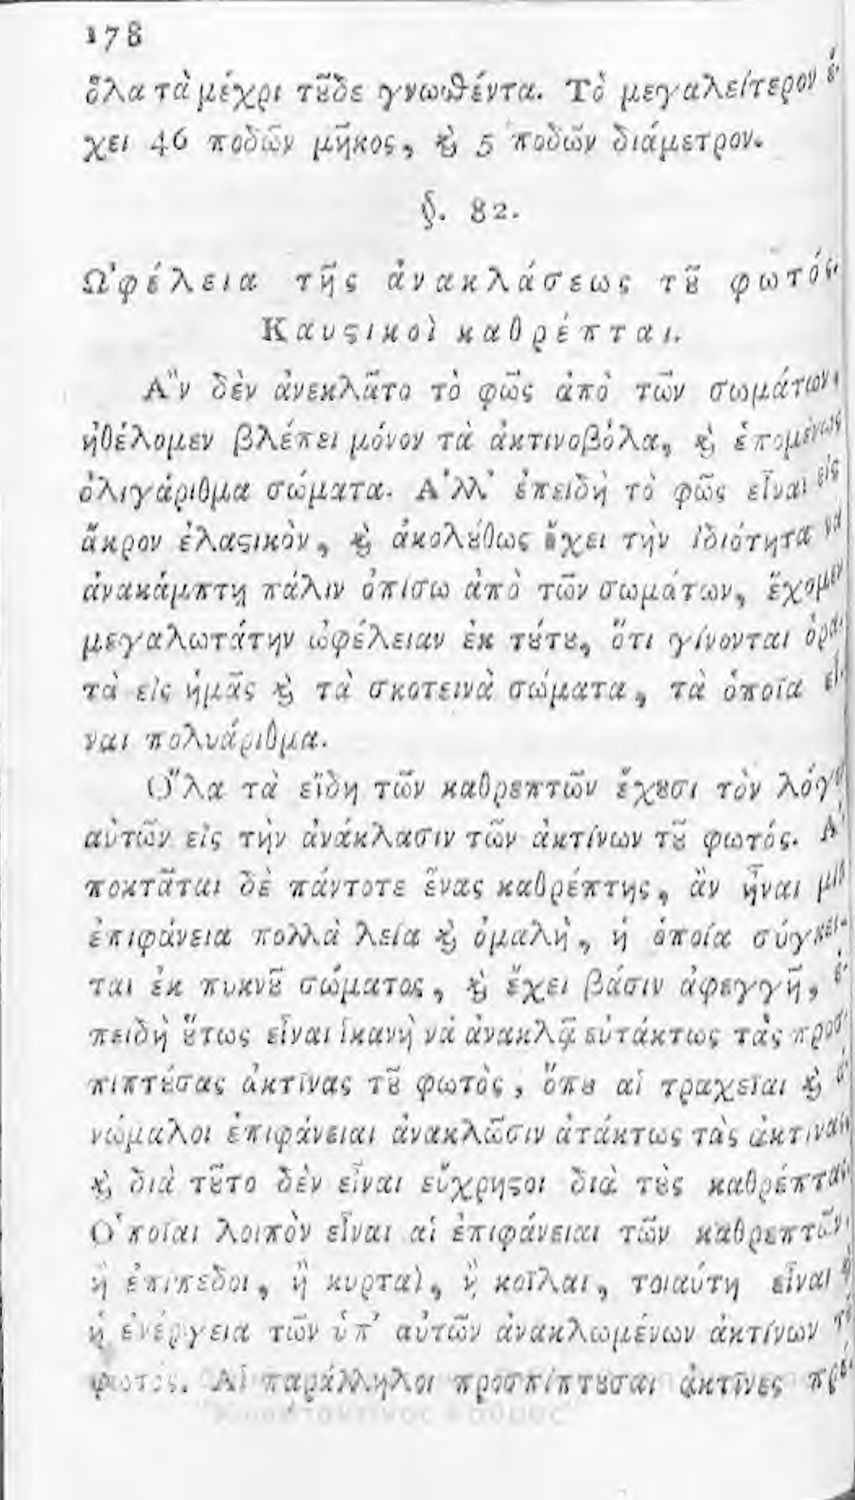 178
ὅλα τὰ μέχρι τȣ͂δε γνωσθέντα. Τὸ μεγαλείτερον ἔ-
χει 46 ποδῶν μῆκος, ϗ 5 ποδῶν διάμετρον.
§. 82.
Ὠφέλεια τῆς ἀνακλάσεως τȣ͂ φωτός.
Καυϛικοὶ καθρέπται.
Ἂν δὲν ἀνεκλᾶτο τὸ φῶς ἀπὸ τῶν σωμάτων,
ἠθέλομεν βλέπει μόνον τὰ ἀκτινοβόλα, ϗ ἑπομένως
ὀλιγάριθμα σώματα. Ἀλλ' ἐπειδὴ τὸ φῶς εἶναι εἰς
ἄκρον ἐλαϛικὸν, ϗ ἀκολȣ́θως ἔχει τὴν ἰδιότητα νὰ
ἀνακάμπτῃ πάλιν ὀπίσω ἀπὸ τῶν σωμάτων, ἔχομεν
μεγαλωτάτην ὠφέλειαν ἐκ τȣ́τȣ, ὅτι γίνονται ὁρα-
τὰ εἰς ἡμᾶς ϗ τὰ σκοτεινὰ σώματα, τὰ ὁποῖα εἶ-
ναι πολυάριθμα.
Ὅλα τὰ εἴδη τῶν καθρεπτῶν ἔχȣσι τὸν λόγον
αὐτῶν εἰς τὴν ἀνάκλασιν τῶν ἀκτίνων τȣ͂ φωτός. Ἀ-
ποκτᾶται δὲ πάντοτε ἕνας καθρέπτης, ἂν ᾖναι μία
ἐπιφάνεια πολλὰ λεία ϗ ὁμαλὴ, ἡ ὁποία σύγκει-
ται ἐκ πυκνȣ͂ σώματος, ϗ ἔχει βάσιν ἀφεγγῆ, ἐ-
πειδὴ ȣ̔́τως εἶναι ἱκανὴ νὰ ἀνακλᾷ εὐτάκτως τὰς προσ-
πιπτȣ́σας ἀκτῖνας τȣ͂ φωτὸς, ὅπȣ αἱ τραχεῖαι ϗ ἀ-
νώμαλοι ἐπιφάνειαι ἀνακλῶσιν ἀτάκτως τὰς ἀκτῖνας,
ϗ διὰ τȣ͂το δὲν εἶναι εὔχρηϛοι διὰ τȣ̀ς καθρέπτας.
Ὁποῖαι λοιπὸν εἶναι αἱ ἐπιφάνειαι τῶν καθρεπτῶν,
ἢ ἐπίπεδοι, ἢ κυρταὶ, ἢ κοῖλαι, τοιαύτη εἶναι ϗ
ἡ ἐνέργεια τῶν ὑπ' αὐτῶν ἀνακλωμένων ἀκτίνων τȣ͂
φωτός. Αἱ παράλληλοι προσπίπτȣσαι ἀκτῖνες πρέ-